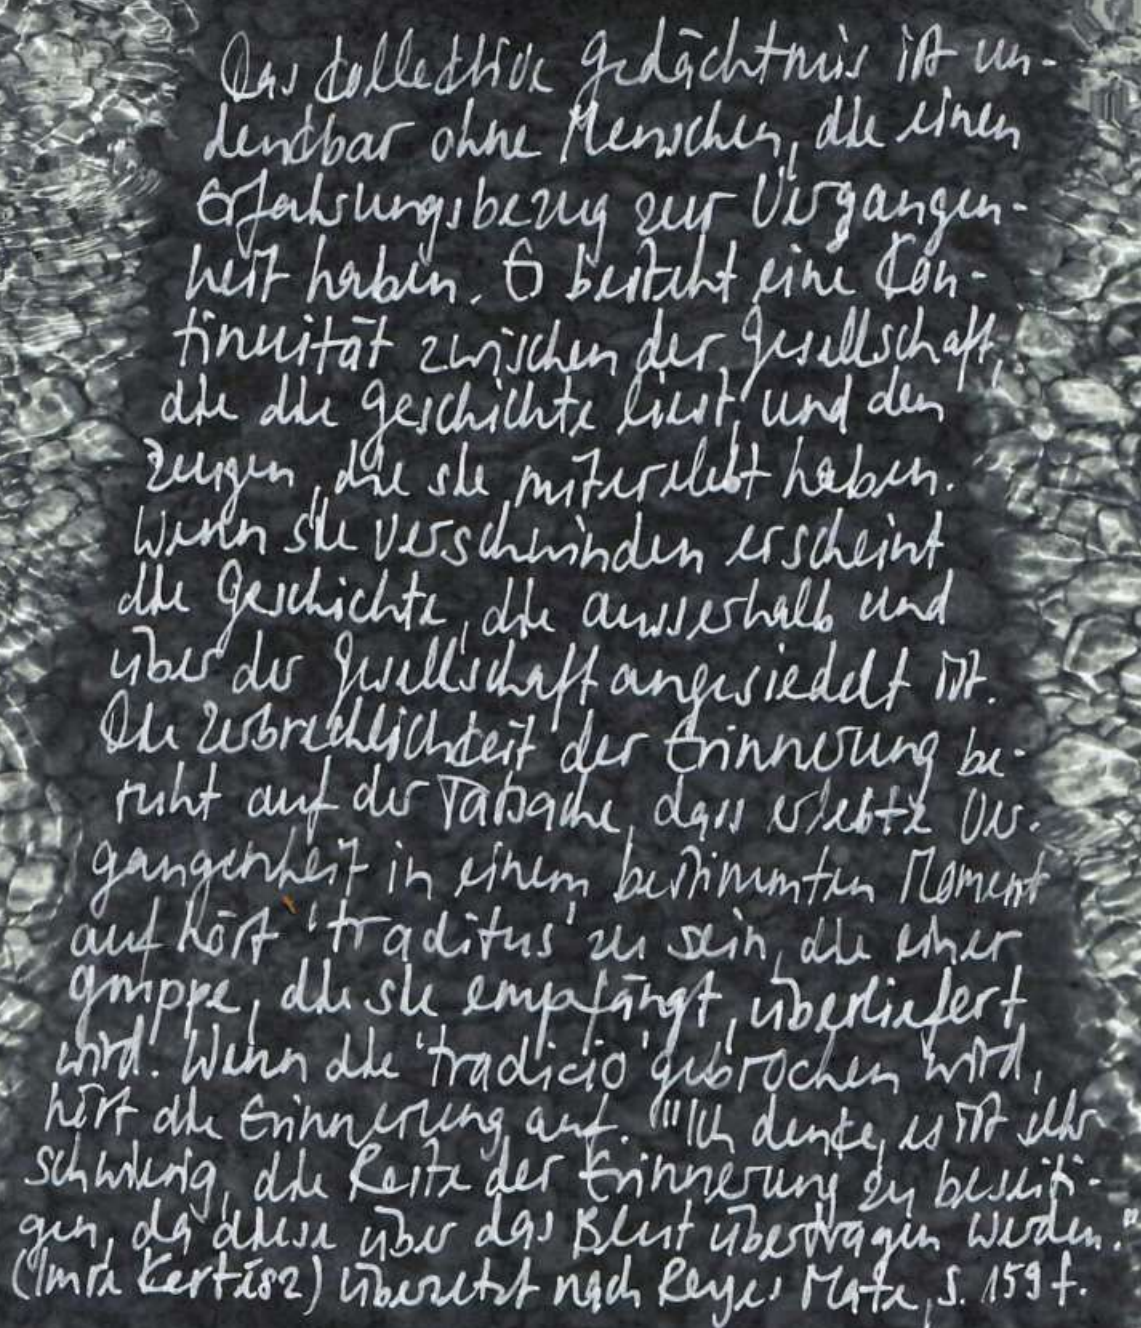 Das kollektive Gedächtnis ist un-
denkbar ohne Menschen, die einen
Erfahrungsbezug zur Vergangen-
heit haben. Es besteht eine Kon-
tinuität zwischen der Gesellschaft,
die die Geschichte liest, und den
Zeugen, die sie miterlebt haben.
Wenn sie verschwinden erscheint
die Geschichte, die ausserhalb und
über der Gesellschaft angesiedelt ist.
Die Zerbrechlichkeit der Erinnerung be-
ruht auf der Tatsache, dass erlebte Ver-
gangenheit in einem bestimmten Moment
aufhört 'traditus' zu sein, die einer
gruppe, die sie empfängt, überliefert
wird. Wenn die 'tradicio' gebrochen wird,
hört die Erinnerung auf. "Ich denke, es ist sehr
schwierig, die Reste der Erinnerung zu beseiti-
gen, da diese über das Blut übertragen werden."
(Imre Kertész) übersetzt nach Reyes Mate, S. 159 f.